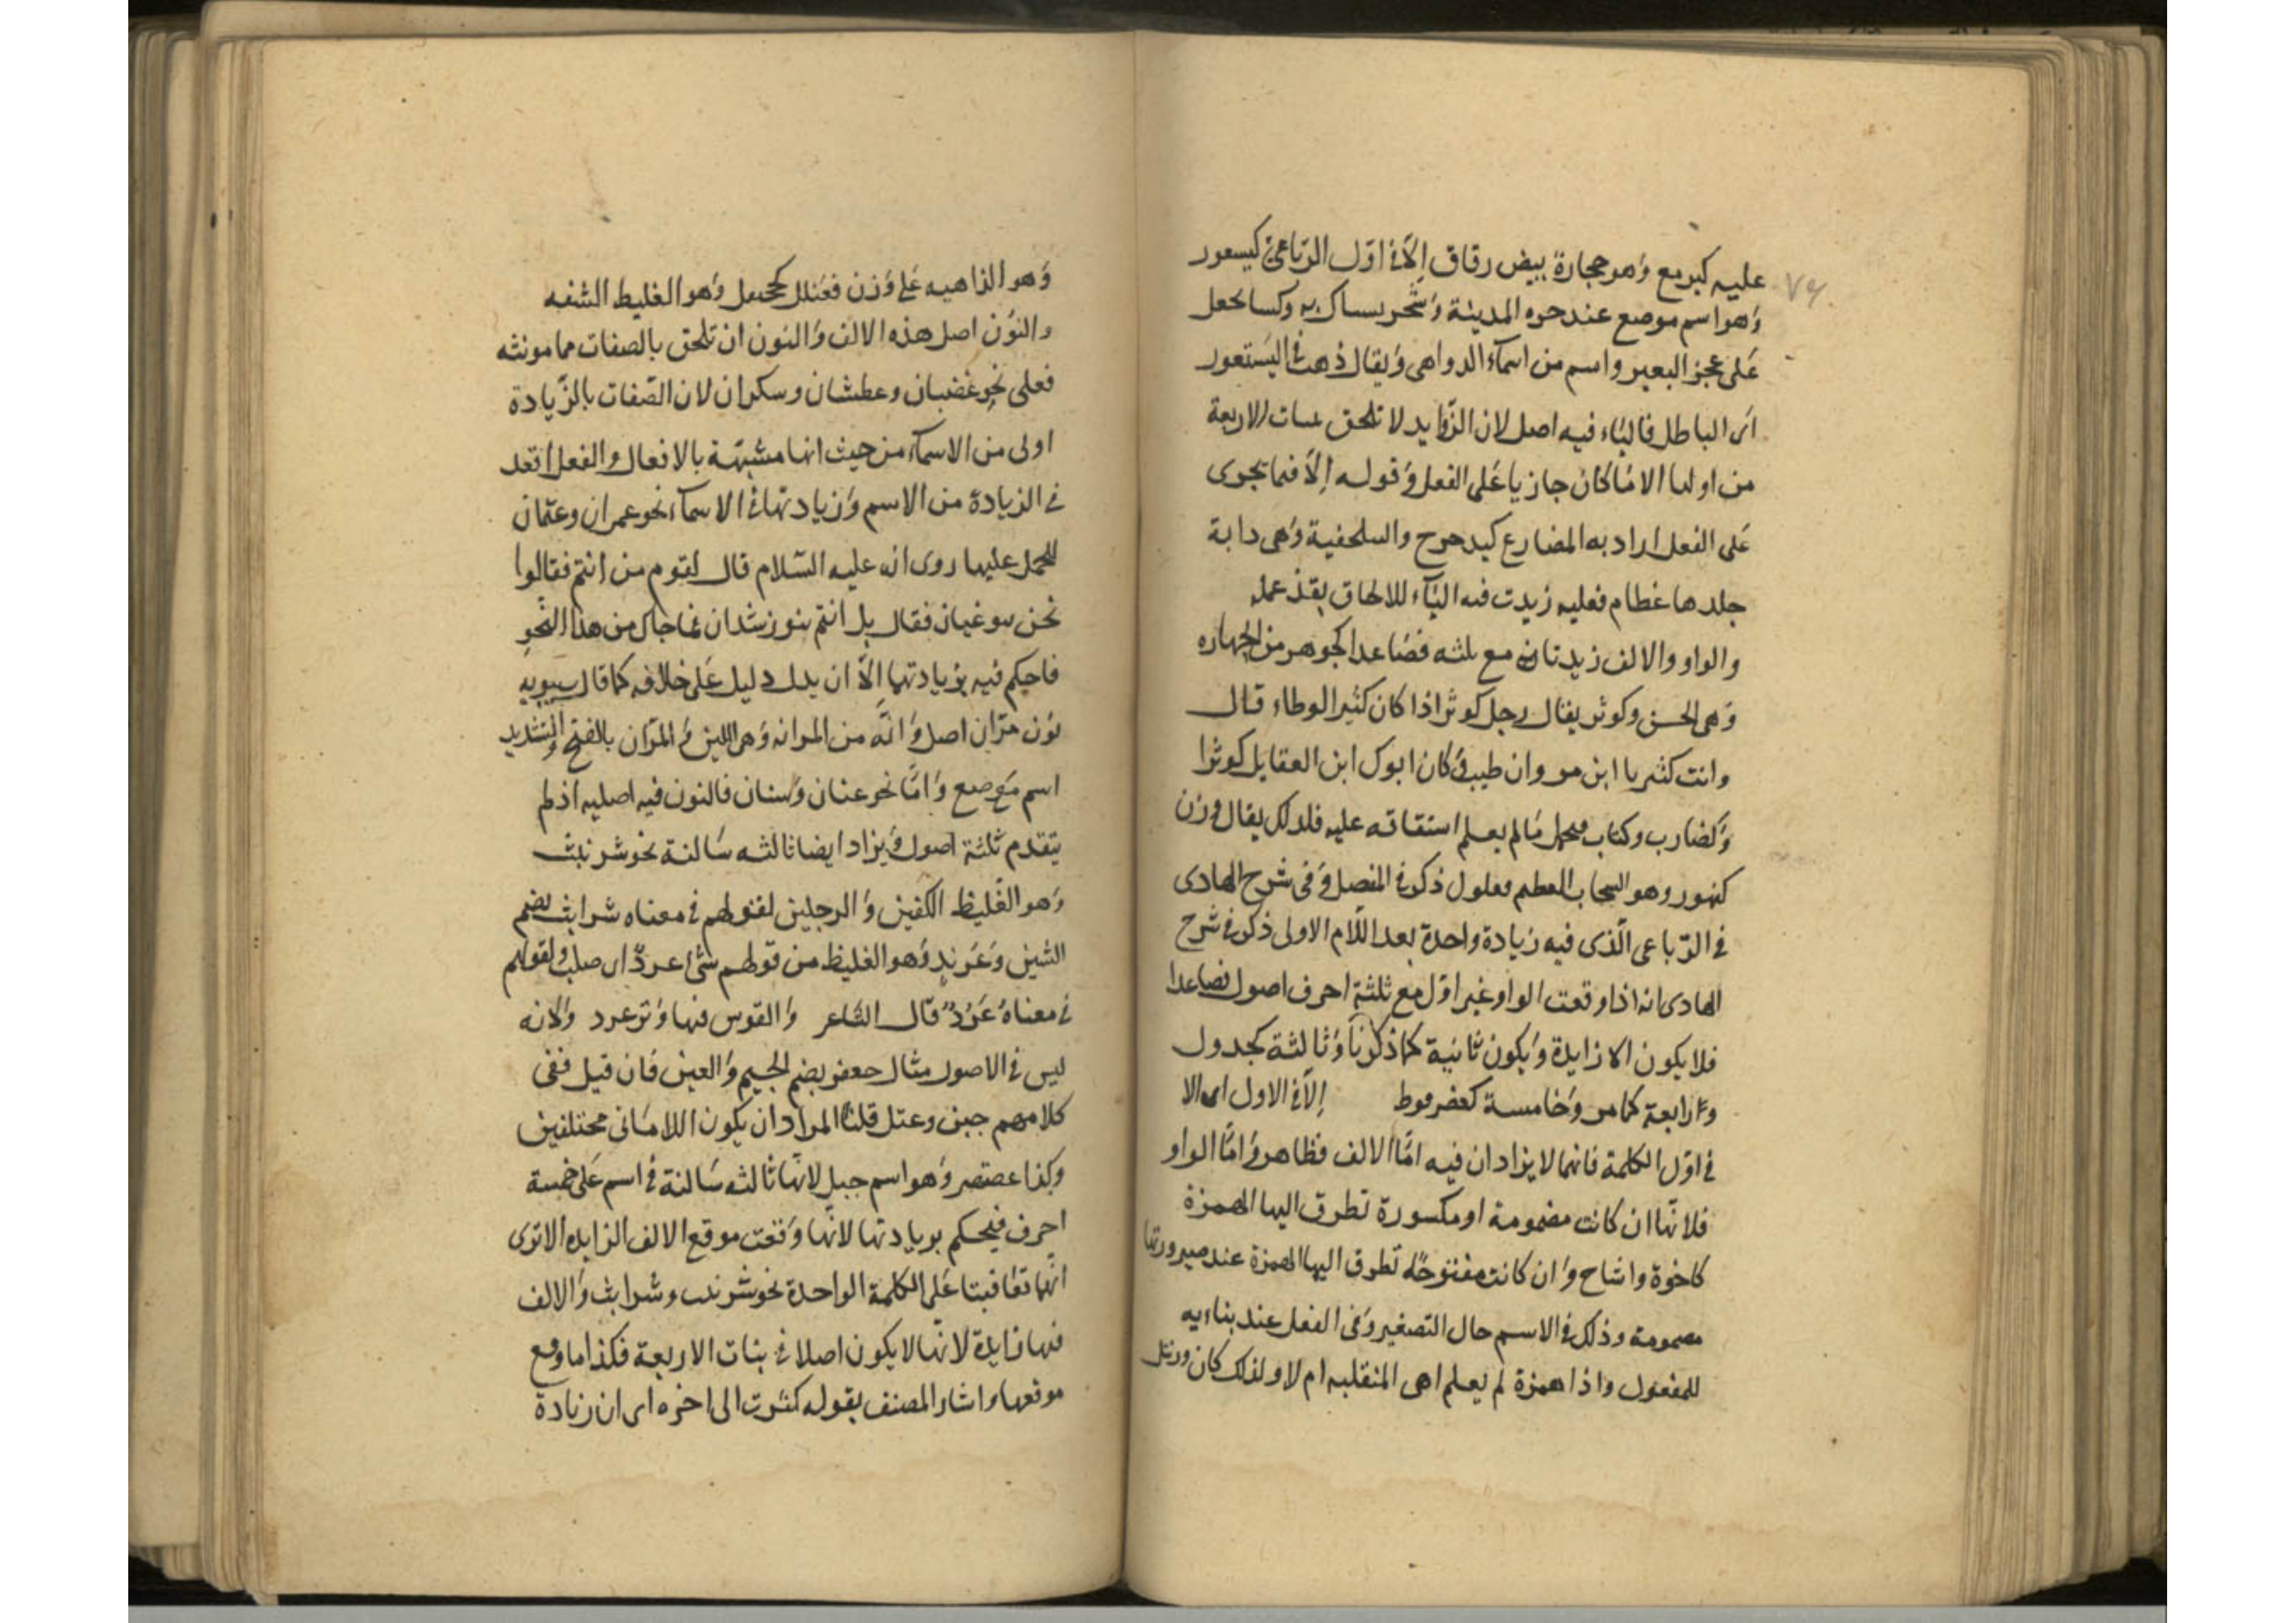 عليه كيرمع وهو حجارة بيض رقاق إلا في اول الرباعي كيسعور
وهو اسم موضع عند حره المدينة وشجر يستاك به وكسا يجعل
على عجز البعير واسم من اسماء الدواهي ويقال ذهب في اليستعور
اى الباطل فالياء فيه اصل لان الزوايد لا تلحق بنات الاربعة
من اولها الا ما كان جاريا على الفعل وقوله إلا فيما يجرى
على الفعل اراد به المضارع كيدحرج والسلحفية وهى دابة
جلدها عظام فعليه زيدت فيه الياء للالحاق بقذعمله
والواو والالف زيدتا مع ثلثه فصاعدا كجوهر من الجهاره
وهى الحسن وكوثر يقال رجل كوثر اذا كان كثير الوطاء قال
وانت كثير يا ابن مروان طيب وكان ابوك ابن العقايل كوثرا
وكضارب وكتاب فيحمل ما لم يعلم اشتقاقه عليه فلذلك يقال وزن
كنهور وهو السحاب العظيم فعلول ذكر في المفصل وفى شرح الهادى
في الرباعى الذى فيه زيادة واحدة بعد اللام الاولى ذكر في شرح
الهادى انه اذا وقعت الواو غير اول مع ثلثة احرف اصول فصاعدا
فلا يكون الا زايدة ويكون ثانية كما ذكرنا وثالثة كجدول
ورابعة كما مر وخامسة كعضرفوط إلا في الاول اى الا
في اول الكلمة فانهما لا يزادان فيه اما الالف فظاهر واما الواو
فلانها ان كانت مضمومة او مكسورة تطرق اليها الهمزة
كاخوة واشاح وان كانت مفتوحة تطرق اليها الهمزة عند صيرورتها
مضمومة وذلك في الاسم حال التصغير وفى الفعل عند بنايه
للمفعول واذا همزة لم يعلم اهى المنقلبه ام لا ولذلك كان ورنتل
وهو الداهيه على وزن فعنلل كجحنفل وهو الغليظ الشفه
والنون اصل هذه الالف والنون ان تلحق بالصفات مما مونثه
فعلى نحو غضبان وعطشان وسكران لان الصفات بالزيادة
اولى من الاسماء من حيث انها مشبهة بالافعال والفعل اقعد
في الزيادة من الاسم وزيادتها في الاسماء نحو عمران وعثمان
للحمل عليها روى انه عليه السلام قال لقوم من انتم فقالوا
نحن بنو غيان فقال بل انتم بنو رشدان فما جاك من هذا النحو
فاحكم فيه بزيادتها إلا ان يدل دليل على خلافه كما قال سيبويه
نون مران اصل وانه من المرانه وهى اللين والمران بالفتح والتشديد
اسم موضع واما نحو عنان وسنان فالنون فيه اصليه اذ لم
يتقدم ثلثة اصول ويزاد ايضا ثالثه ساكنة نحو شرنبث
وهو الغليظ الكفين والرجلين لقولهم في معناه شرابث بضم
الشين وعرند وهو الغليظ من قولهم شئ عرد اى صلب ولقولهم
في معناه عرد قال الشاعر والقوس فيها وتر عرد ولانه
ليس في الاصول مثال جعفر بضم الجيم والعين فان قيل ففى
كلامهم جبن وعتل قلنا المراد ان يكون اللامانى مختلفين
وكذا عصنصر وهو اسم جبل لانها ثالثه ساكنة في اسم على خمسة
احرف فيحكم بزيادتها لانها وقعت موقع الالف الزايده الا ترى
انهما تعاقبتا على الكلمة الواحدة نحو شرنبث وشرابث والالف
فيها زايدة لانها لا يكون اصلا في بنات الاربعة فكذا ما وقع
موقعها واشار المصنف بقوله كثرت الى اخره اى ان زيادة